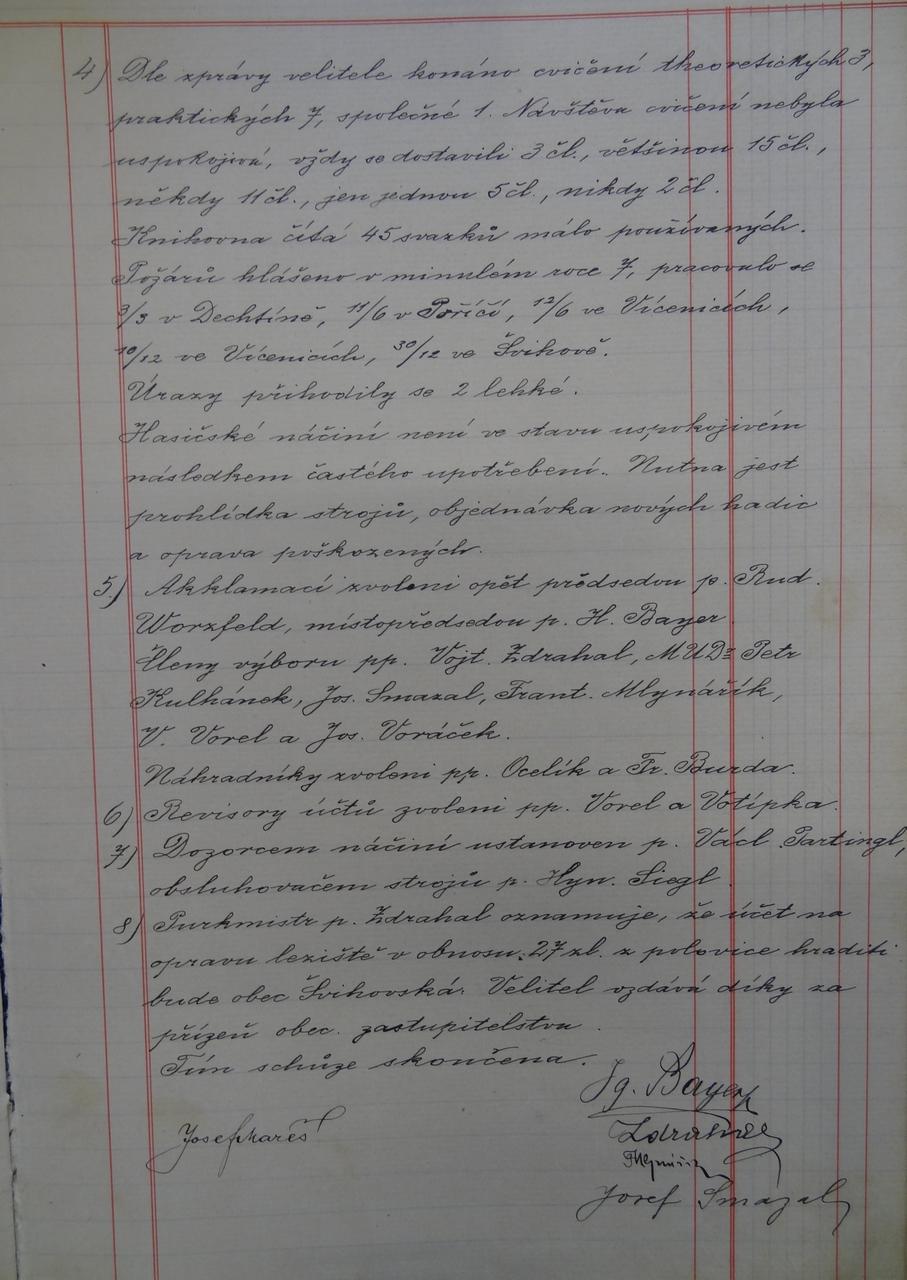 4) Dle zprávy velitele konáno cvičení theoretických 3,
praktických 7, společné 1. Návštěva cvičení nebyla
uspokojivá, vždy se dostavili 3 čl., většinou 15 čl.,
někdy 11 čl., jen jednou 5 čl., nikdy 2 čl.
Knihovna čítá 45 svazků málo používaných.
Požárů hlášeno v minulém roce 7, pracovalo se
3/3 v Dechtíně, 11/6 v Poříčí, 12/6 ve Vícenicích,
10/12 ve Vícenicích, 30/12 ve Švihově.
Úrazy přihodily se 2 lehké.
Hasičské náčiní není ve stavu uspokojivém
následkem častého upotřebení. Nutna jest
prohlídka strojů, objednávka nových hadic
a oprava poškozených.
5.) Akklamací zvoleni opět předsedou p. Rud.
Worzfeld, místopředsedou p. H. Bayer
Členy výboru pp. Vojt. Zdrahal, MUDr Petr
Kulhánek, Jos. Smazal, Frant. Mlynářík,
V. Vorel a Jos. Voráček.
Náhradníky zvoleni pp. Ocelík a Fr. Burda.
6) Revisory účtů zvoleni pp. Vorel a Votípka.
7) Dozorcem náčiní ustanoven p. Václ. Partingl,
obsluhovačem strojů p. Hyn. Siegl.
8) Purkmistr p. Zdrahal oznamuje, že účet na
opravu leziště v obnosu 27 zl. z polovice hraditi
bude obec Švihovská. Velitel vzdává díky za
přízeň obec. zastupitelstva.
Tím schůze skončena.
Ig. Bayer
Josef Mareš
Zdrahal
Josef Smazal